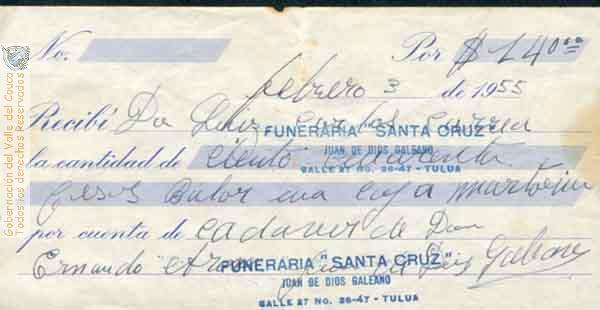 No. Por $ 140.oo
febrero 3 de 1955
Recibí Don Luis Carlos Correa
FUNERARIA "SANTA CRUZ"
JUAN DE DIOS GALEANO
CALLE 27 No. 26-47 - TULUA
la cantidad de ciento cuarenta
pesos balor una caja mortoria
por cuenta de cadaver de Don
Ernando
FUNERARIA "SANTA CRUZ"
JUAN DE DIOS GALEANO
CALLE 27 No. 26-47 - TULUA
Gobernación del Valle del Cauca
Todos los derechos Reservados